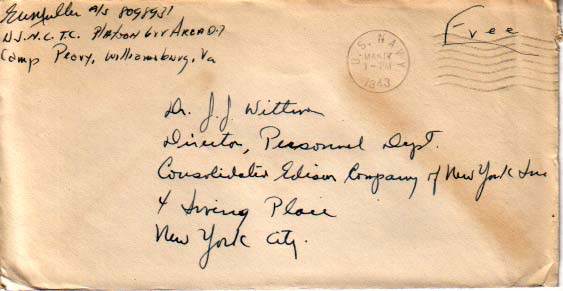 A/S 8098931
N.C.T.C. Platoon 644 Area D-7
Camp Peary, Williamsburg, Va
U.S. NAVY
1943
Free
Dr. J. J. Wittmer
Director, Personnel Dept.
Consolidated Edison Company of New York Inc
4 Irving Place
New York City.